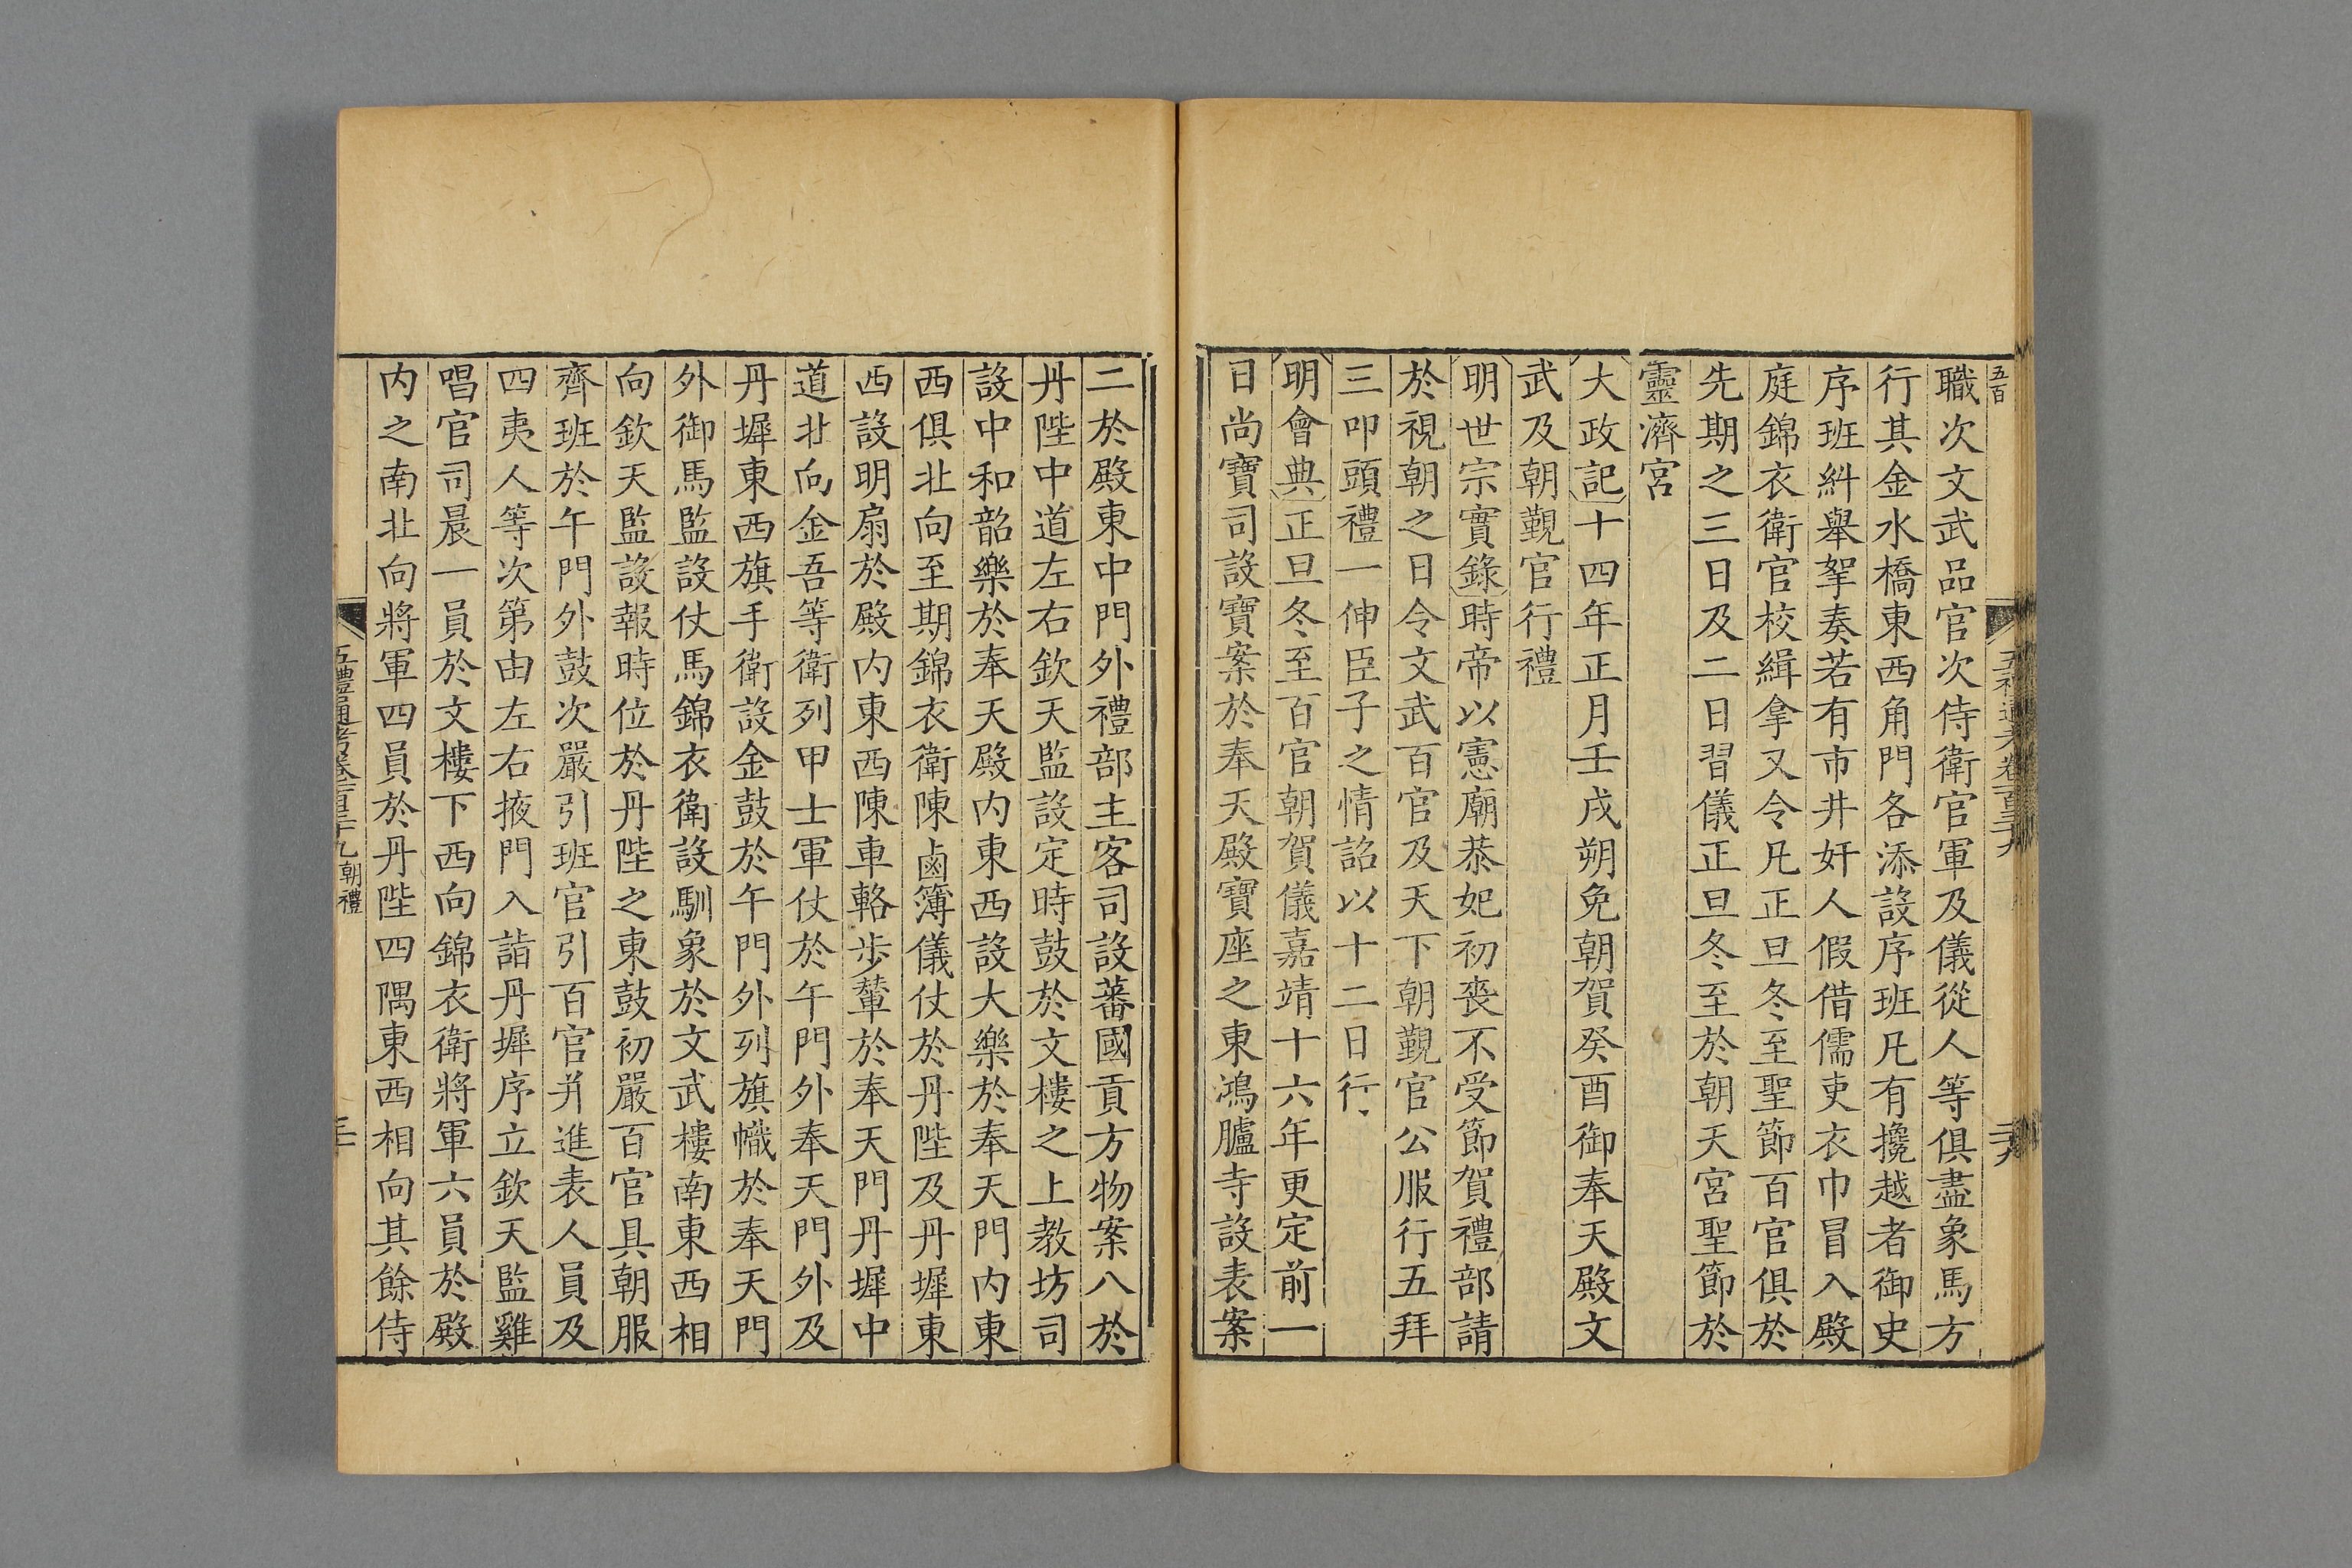 五百
職次文武品官次侍衛官軍及儀從人等俱盡象馬方
行其金水橋東西角門各添設序班凡有攙越者御史
序班糾舉挐奏若有市井奸人假借儒吏衣巾冒入殿
庭錦衣衛官校緝拿又令凡正旦冬至聖節百官俱於
先期之三日及二日習儀正旦冬至於朝天宮聖節於
靈濟宮
大政記十四年正月壬戌朔免朝賀癸酉御奉天殿文
武及朝覲官行禮
明世宗實錄時帝以憲廟恭妃初喪不受節賀禮部請
於視朝之日令文武百官及天下朝覲官公服行五拜
三叩頭禮一伸臣子之情詔以十二日行
明會典正旦冬至百官朝賀儀嘉靖十六年更定前一
日尚寶司設寶案於奉天殿寶座之東鴻臚寺設表案
二於殿東中門外禮部主客司設蕃國貢方物案八於
丹陛中道左右欽天監設定時鼓於文樓之上教坊司
設中和韶樂於奉天殿內東西設大樂於奉天門內東
西俱北向至期錦衣衛陳鹵簿儀仗於丹陛及丹墀東
西設明扇於殿內東西陳車輅步輦於奉天門丹墀中
道北向金吾等衛列甲士軍仗於午門外奉天門外及
丹墀東西旗手衛設金鼓於午門外列旗幟於奉天門
外御馬監設仗馬錦衣衛設馴象於文武樓南東西相
向欽天監設報時位於丹陛之東鼓初嚴百官具朝服
齊班於午門外鼓次嚴引班官引百官并進表人員及
四夷人等次第由左右掖門入詣丹墀序立欽天監雞
唱官司晨一員於文樓下西向錦衣衛將軍六員於殿
內之南北向將軍四員於丹陛四隅東西相向其餘侍
五禮通考卷一百三十九 朝禮